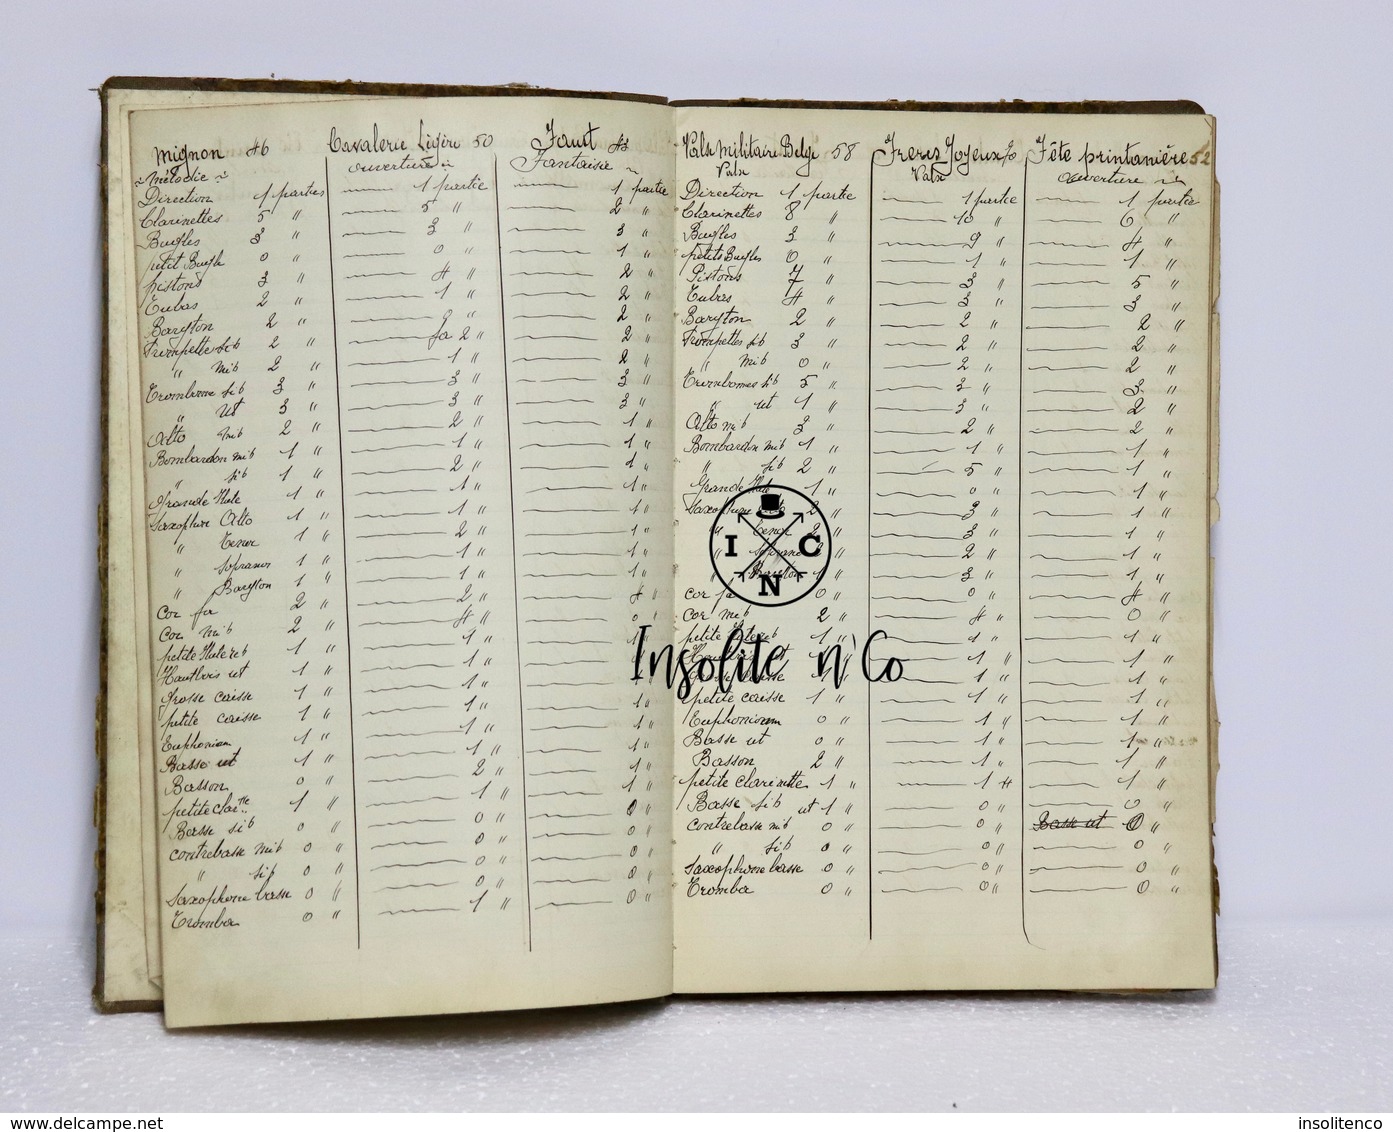 Mignon 46
~ Mélodie ~
Direction 1 parties
Clarinettes 5 "
Bugles 3 "
petit Bugle 0 "
pistons 3 "
Tubas 2 "
Baryton 2 "
Trompette sib 2 "
" mib 2 "
Trombone sib 3 "
" ut 3 "
Alto mib 2 "
Bombardon mib 1 "
" sib 1 "
Grande Flute 1 "
Saxophone Alto 1 "
" Tenor 1 "
" soprano 1 "
" Baryton 1 "
Cor fa 2 "
Cor mib 2 "
petite Flute reb 1 "
Hautbois ut 1 "
Grosse caisse 1 "
petite caisse 1 "
Euphonium 1 "
Basse ut 1 "
Basson 0 "
petite clartte 1 "
Basse sib 0 "
contrebasse mib 0 "
" sib 0 "
Saxophone basse 0 "
Tromba 0 "
Cavalerie Légère 50
ouverture
1 partie
5 "
3 "
0 "
4 "
1 "
2 "
fa 2 "
1 "
3 "
3 "
2 "
1 "
2 "
1 "
1 "
2 "
1 "
1 "
2 "
4 "
1 "
1 "
1 "
1 "
1 "
1 "
2 "
1 "
0 "
0 "
0 "
0 "
1 "
Faust 43
Fantaisie
1 partie
2 "
3 "
1 "
2 "
2 "
2 "
2 "
2 "
3 "
3 "
1 "
1 "
1 "
1 "
1 "
1 "
1 "
1 "
4 "
0 "
1 "
1 "
1 "
1 "
1 "
1 "
1 "
1 "
0 "
0 "
0 "
0 "
0 "
Valse Militaire Belge 58
Valse
Direction 1 partie
Clarinettes 8 "
Bugles 3 "
petits Bugles 0 "
Pistons 7 "
Tubas 4 "
Baryton 2 "
Trompettes sib 3 "
" mib 0 "
Trombones sib 5 "
" ut 1 "
Alto mib 3 "
Bombardon mib 1 "
" sib 2 "
Grande Flute 1 "
Saxophone 2 "
" Tenor 2 "
" soprano 2 "
" Baryton 1 "
cor fa 0 "
cor mib 2 "
petite Flute reb 1 "
petite caisse 1 "
Euphonium 0 "
Basse ut 0 "
Basson 2 "
petite clarinette 1 "
Basse sib ut 1 "
contrebasse mib 0 "
" sib 0 "
Saxophone basse 0 "
Tromba 0 "
Freres Joyeux 70
Valse
1 partie
10 "
9 "
1 "
3 "
3 "
2 "
2 "
2 "
3 "
3 "
2 "
1 "
5 "
0 "
3 "
3 "
2 "
3 "
0 "
4 "
1 "
1 "
1 "
1 "
1 "
1 "
1 "
1 "
0 "
0 "
0 "
0 "
0 "
Fête printanière 52
ouverture
1 partie
6 "
4 "
1 "
5 "
3 "
2 "
2 "
2 "
3 "
2 "
2 "
1 "
1 "
1 "
1 "
1 "
1 "
1 "
4 "
0 "
1 "
1 "
1 "
1 "
1 "
1 "
1 "
1 "
0 "
Basse ut 0 "
0 "
0 "
0 "
I C
N
Insolite n'Co
www.delcampe.net
insolitenco